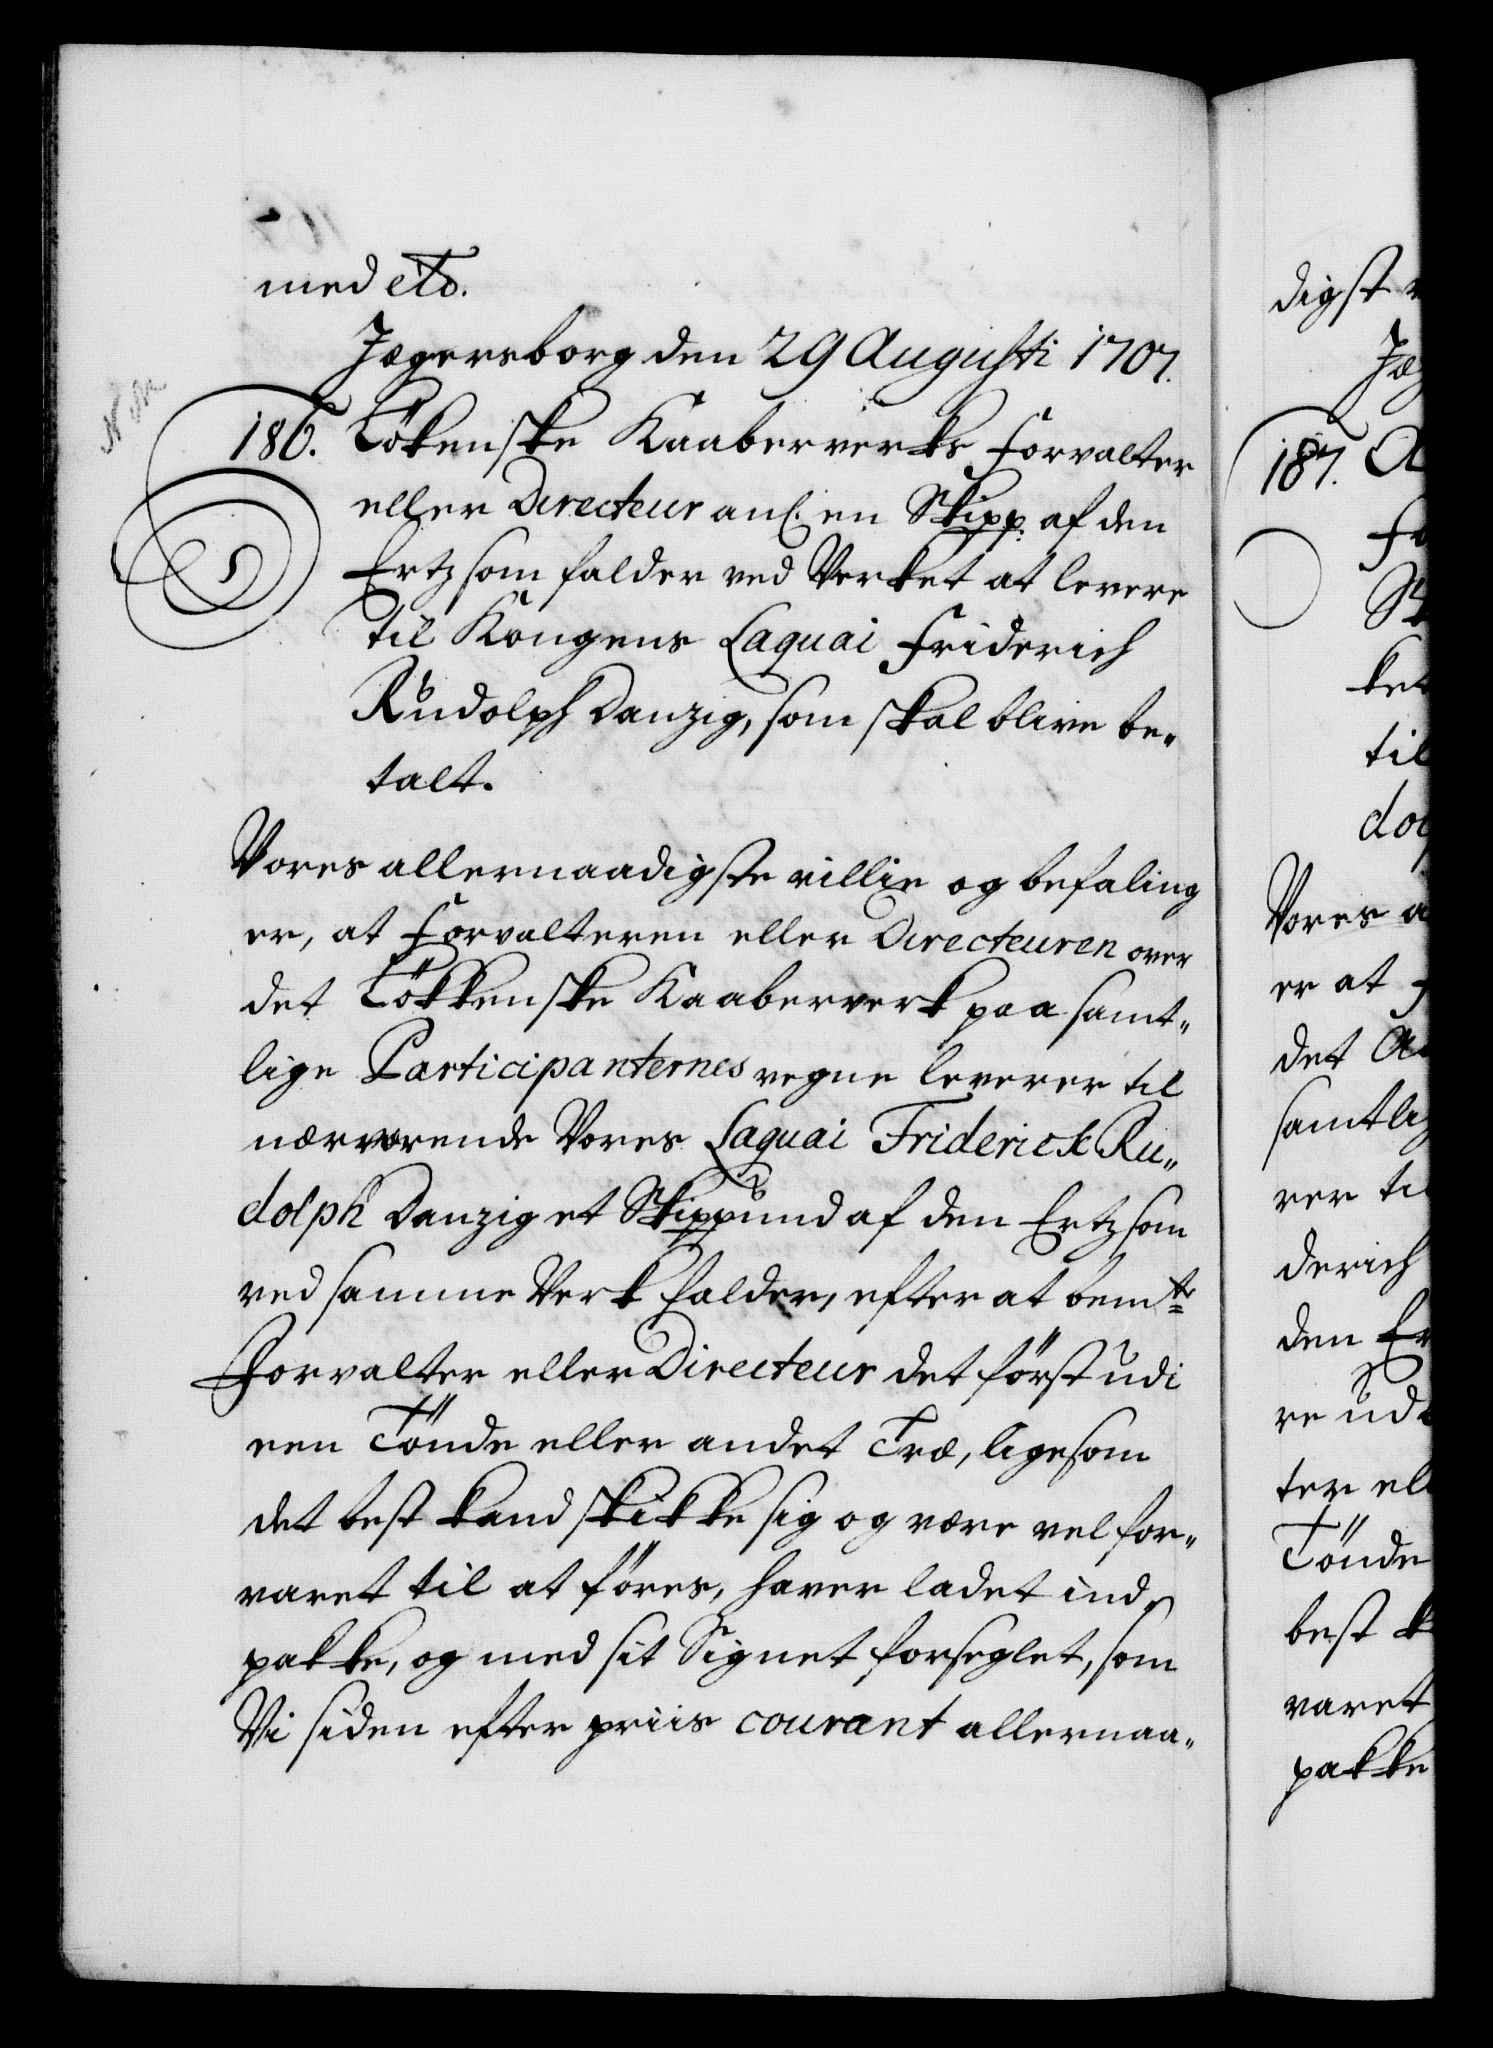 med etc.
Jægersborg den 29 Augusti 1707.
186. Lökenske Kaaberverks Forvalter
eller Directeur anl. en Skipp. af den
Ertz som falder ved Verket at levere
til Kongens Laquai Friderich
Rudolph Danzig, som skal blive be„
talt.
Vores allernaadigste villie og befaling
er, at Forvalteren eller Directeuren over
det Lökkenske Kaaberverk paa samt„
lige Participanternes vegne leverer til
nærværende Vores Laquai Friderick Ru„
dolph Danzig et Skippund af den Ertz som
ved samme Verk falder, efter at bemte
Forvalter eller Directeur det först udi
een Tönde eller andet Træ, ligesom
det best kand skikke sig og være vel for„
varet til at föres, haver ladet ind
pakke, og med sit Signet forseglet, som
Vi siden efter priis courant allernaa„
digst
Jæ
187. A
Fo
Sk
ket
til
dol
Vores a
er at F
det A
samtlig
rer til
derich
den Er
re ud
ter ell
Tönde
best k
varet
pakke